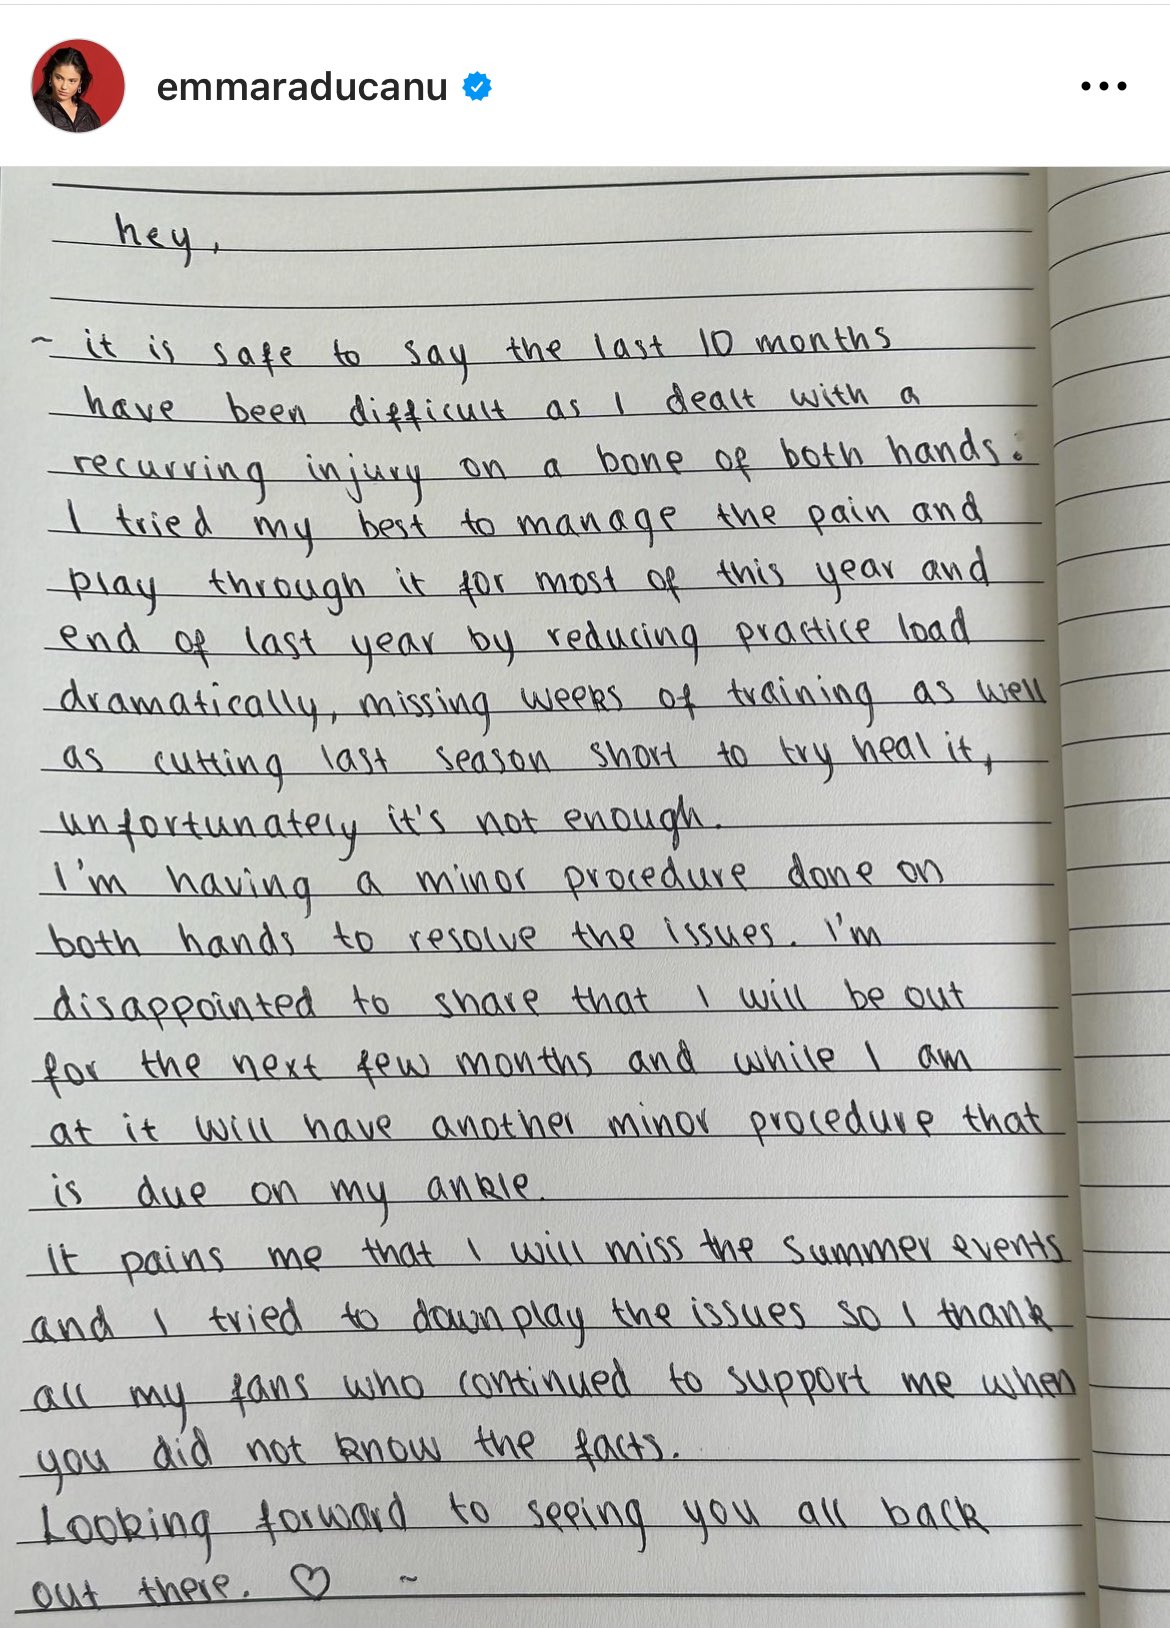 emmaraducanu
hey,
~ it is safe to say the last 10 months
have been difficult as I dealt with a
recurring injury on a bone of both hands.
I tried my best to manage the pain and
play through it for most of this year and
end of last year by reducing practice load
dramatically, missing weeks of training as well
as cutting last season short to try heal it,
unfortunately it's not enough.
I'm having a minor procedure done on
both hands to resolve the issues. I'm
disappointed to share that I will be out
for the next few months and while I am
at it will have another minor procedure that
is due on my ankle.
It pains me that I will miss the summer events
and I tried to downplay the issues so I thank
all my fans who continued to support me when
you did not know the facts.
Looking forward to seeing you all back
out there. ♡ ~